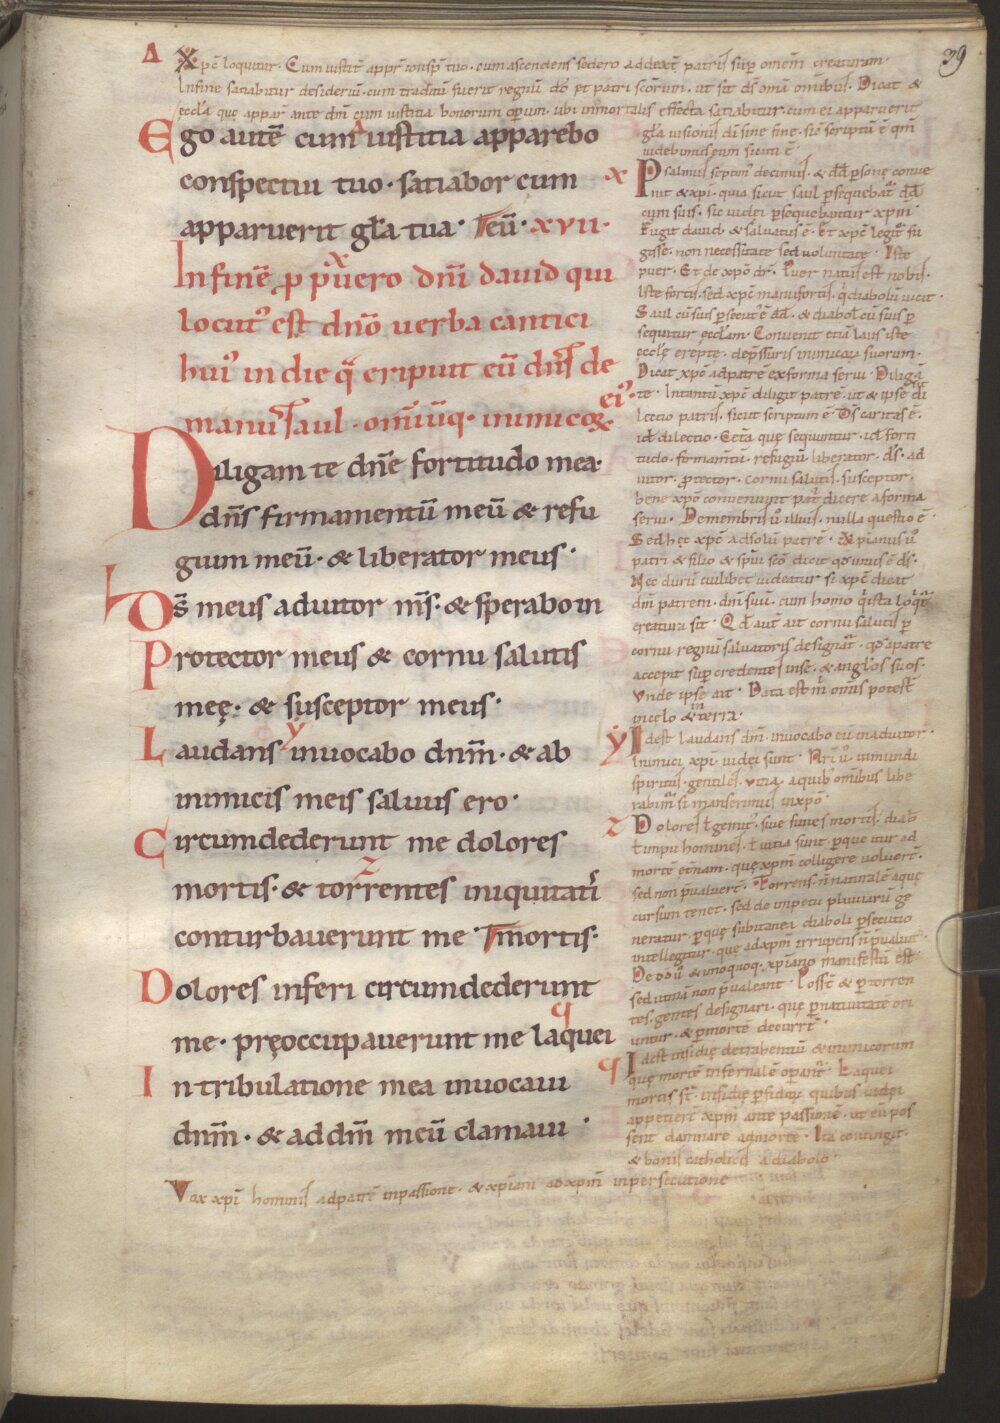 39
Δ Xpc̄ loquitur. Cum iustit̄ appr̄ conspū tuo. cum ascendens sedero ad dext̄ patris sup omēm creaturam.
Infine satiabitur desideriū. cum traditū fuerit regnū dō et patri scōrum. ut sit dš omā omībus. Dicat &
eccl̄a quę appar̄ ante dn̄m cum iustitia bonorum operum. ubi inmortalis effecta satiabitur. cum ei apparuerit
gl̄a uisionis dī sine fine. sic̄ scriptū ē qm̄
uidebimus eum sicuti ē
Ego autē cum iustitia apparebo
conspectui tuo. satiabor cum
apparuerit gl̄a tua. xvii.
Infinē p puero dn̄i dauid qui
locut' est dn̄o uerba cantici
hui' in die q̄ eripuit eū dn̄s de
manu saul. omīuq. inimicoꝝ ei'.
Diligam te dn̄e fortitudo mea.
dn̄s firmamentū meū & refu
gium meū. & liberator meus.
Ds̄ meus adiutor m̄s. & sperabo in
Protector meus & cornu salutis
meę. & susceptor meus.
Laudans inuocabo dn̄m. & ab
inimicis meis saluus ero.
Circumdederunt me dolores
mortis. & torrentes iniquitatī
conturbauerunt me mortis.
Dolores inferi circumdederunt
me. pręoccupauerunt me laquei
In tribulatione mea inuocaui
dn̄m. & ad dm̄ meū clamaui.
x Psalmus septim' decimus. & dd̄ psonę conue
nit & xpi. quia sicut saul psequebat̄ dd̄
cum suis. sic iudei psequebantur xpm̄.
Fugit dauid & saluatus ē. Et xpc̄ legit̄ fu
gisse. non necessitate sed uoluntate. Iste
puer. Et de xpō dr̄. Puer natus est nobis.
Iste fortis. sed xpc̄ manu fortis. q̇ diabolū uicit.
Saul cū suis psecut' ē dd̄. & diabol' cū suis p
sequitur eccl̄am. Conuenit etiā laus iste
eccl̄ę ereptę. depssuris inimicoꝝ suorum.
Dicat xpc̄ ad patrē ex forma serui. Diligā
te. Intantū xpc̄ diligit patrē. ut & ipse sit di
lectio patris. sicut scriptum ē. Ds̄ caritas ē.
id̄ dilectio. Cetā quę sequntur. id̄ forti
tudo. firmamtū. refugiū liberator. ds̄. ad
iutor. ptector. cornu salutis. susceptor.
bene xpō conueniunt pat̄ dicere a forma
serui. De membris u' illius. nulla questio ē.
Sed hęc xpc̄ ad solū patrē. Xpianus u'
patri & filio & spui scō dicit
Nec durū cuilibet uideatur si xpc̄ dicat
dm̄ patrem. dn̄m suū. cum homo q̇ ista loq̇t̄
creatura sit. Qd̄ aut̄ ait cornu salutis p
cornu regnū saluatoris designat̄. qd̄ a patre
accepit sup credentes in se. & angl̄os suos.
Vnde ipse ait. Data est m̄ omīs potest̄
in cęlo & in terra.
ẏ Idest laudans dm̄. inuocabo eū in adiutor̄.
Inimici xpi iudei sunt. Nr̄i u' inmundi
spiritus. gentiles. uitia. a quib' omībus libe
rabim̄ si manserimus in xpō.
z Dolores t gemit'. siue funes mortis. diab̄
t impii homines. t uitia sunt. p que itur ad
mortē etn̄am. quę xpm̄ colligere uoluert̄.
sed non pualuert̄. Torrens. n̄ naturalē aquę
cursum tenet. sed de impetu pluuiarū ge
neratur. p quę subitanei diaboli psecutio
intellegitur. que ad xpm̄ irrupens n̄ pualuit.
De & unoquoq. xpiano manifestū est
sed utinā non pualeant. Possē & p torren
tes. gentes designari. quę p natiuitatē ori
untur. & p mortē decurrt̄.
q Idest insidię detrahentiū & inimicorum
quę mortē infernalē opant̄. Laquei
mortis st̄. insidię pfidoꝝ quibus iudei
appetiert̄ xpm̄ ante passionē. ut eū pos
sent damnare ad morte. Ita contingit.
& bonis catholicis a diabolo.
Vox xpi hominis ad patrē in passione. & xpiani ad xpm̄ in persecutione